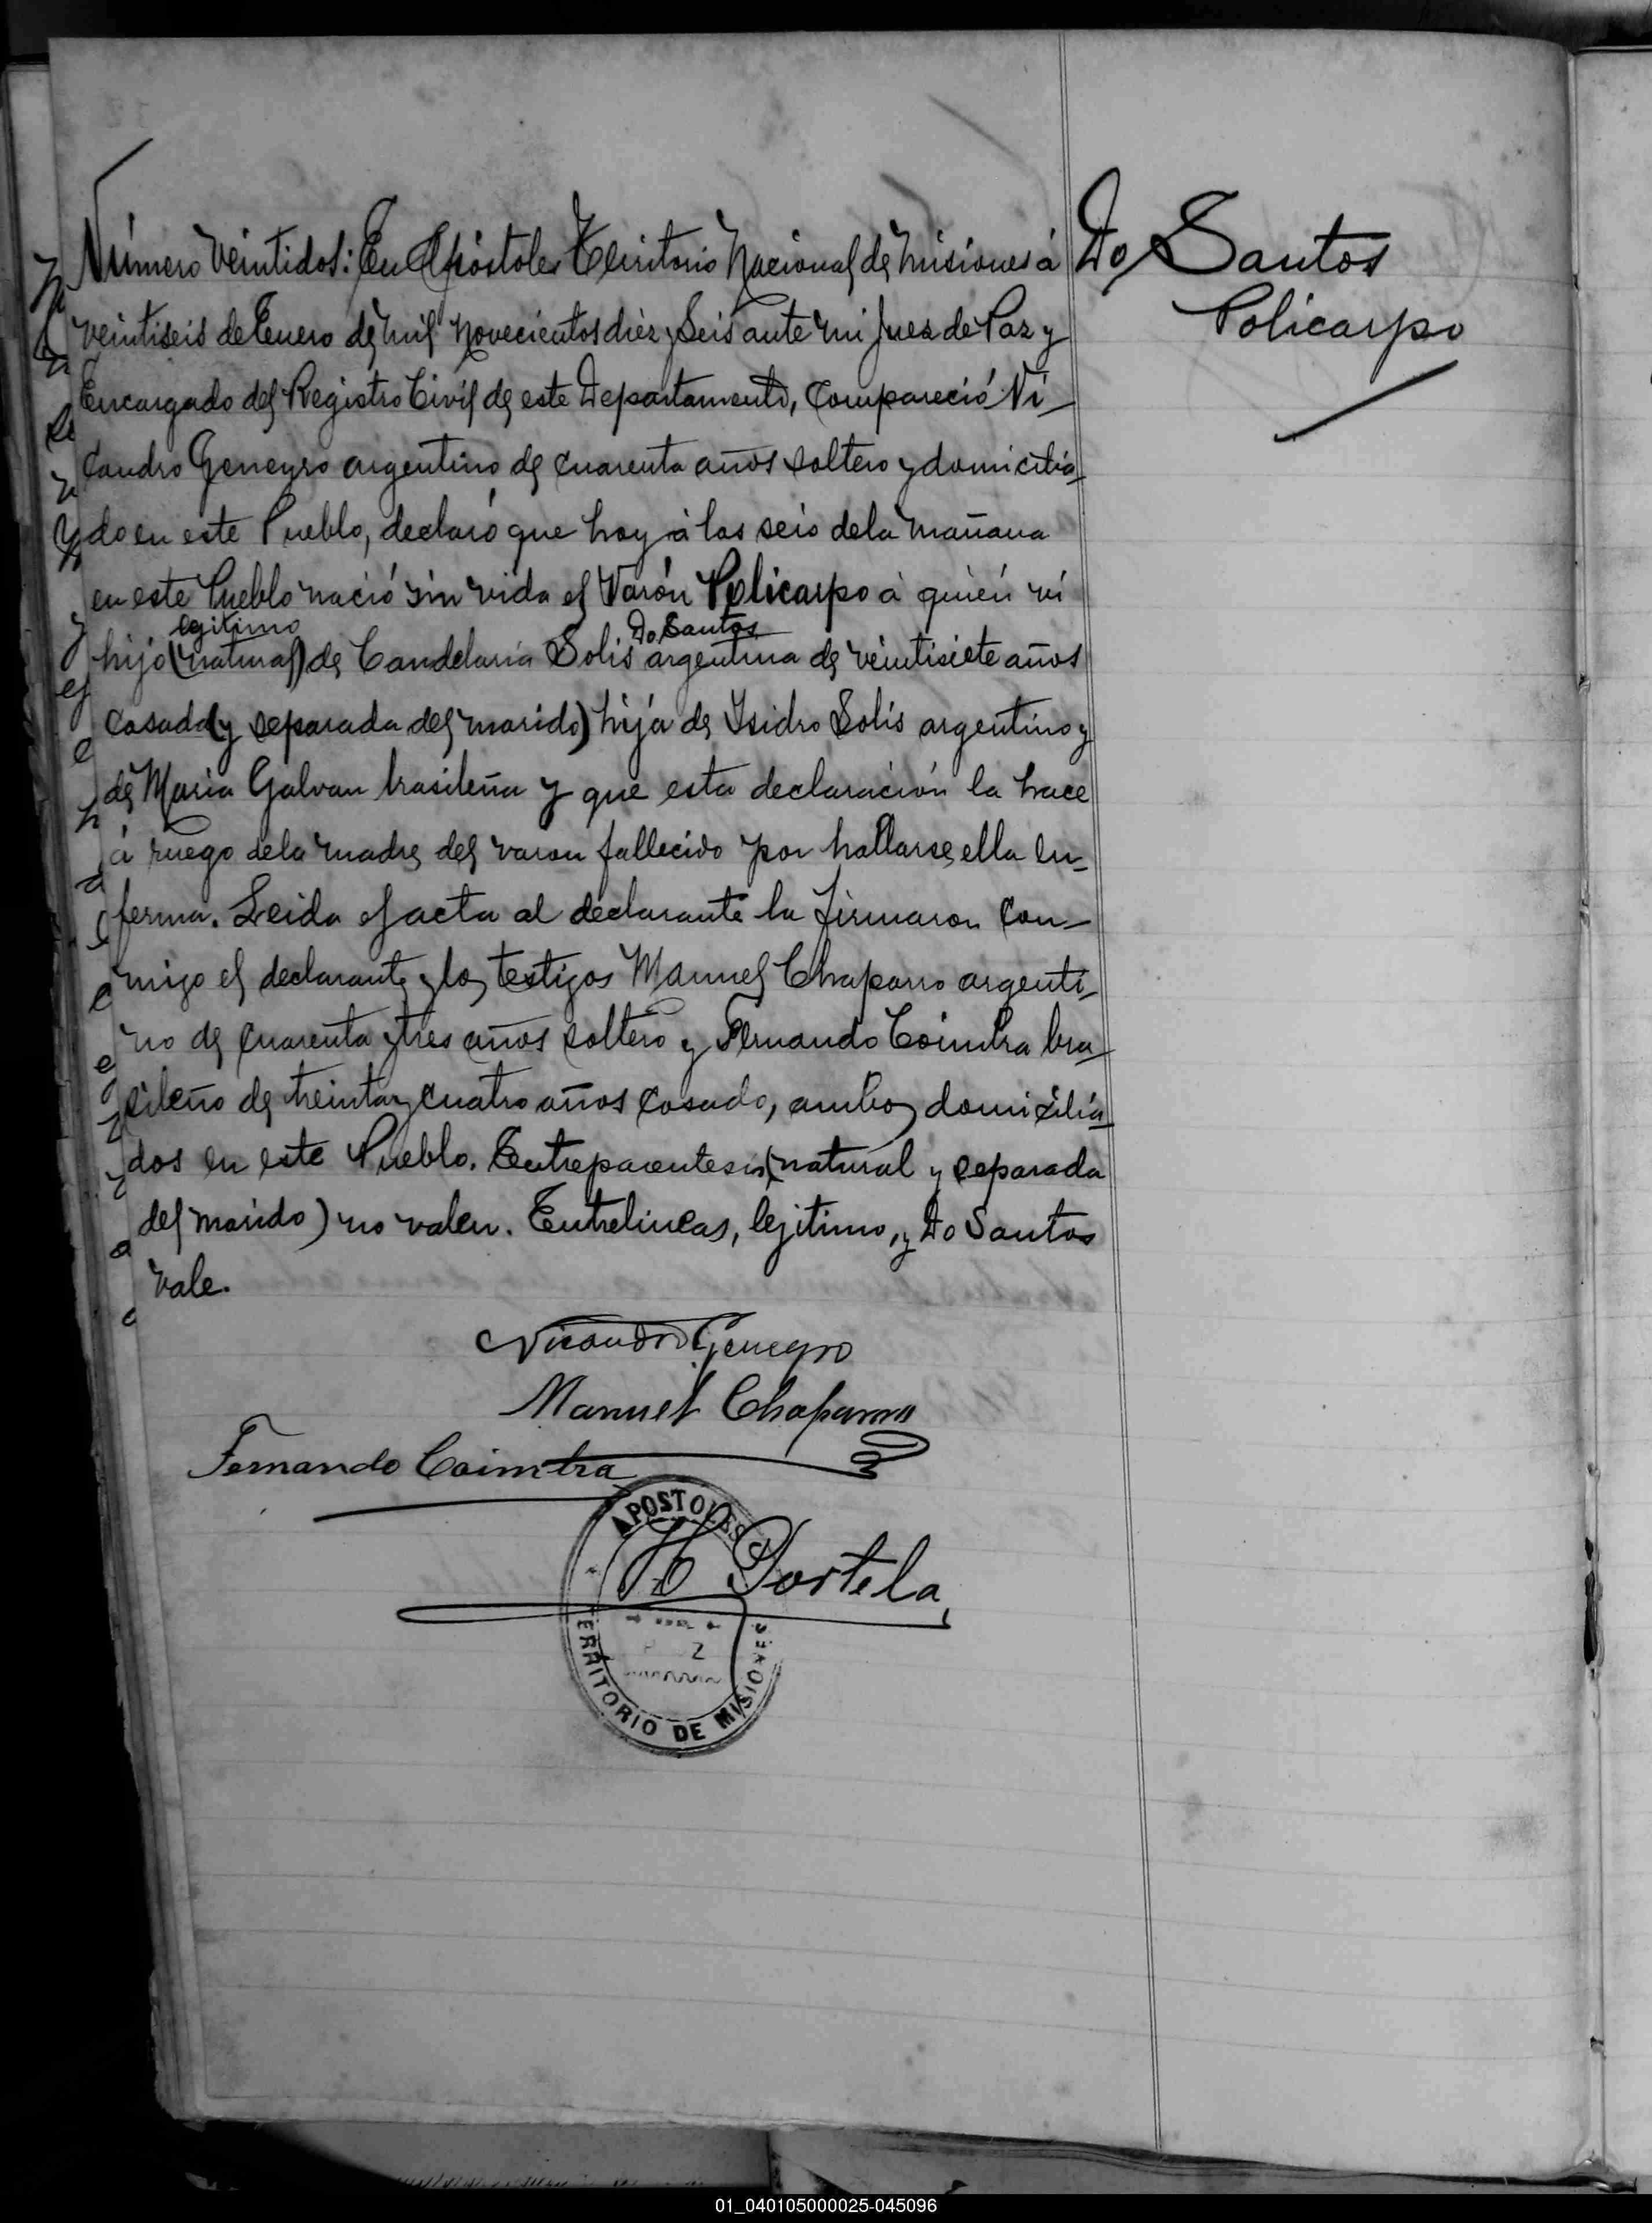 Número veintidos: En Apóstoles Territorio Nacional de Misiones á
veintiseis de Enero de mil novecientos diez y Seis ante mi Juez de Paz y
Encargado del Registro Civil de este Departamento, Compareció Ni-
candro Geneyro argentino de cuarenta años soltero y domicilia-
do en este Pueblo, declaró que hoy á las seis de la mañana
en este Pueblo nació sin vida el Varón Policarpo á quién ví
legitimo Do Santos
hijo (natural) de Candelaria Solis argentina de veintisiete años
casada (y separada del marido) hija de Isidro Solis argentino y
de Maria Galvan brasileña y que esta declaración la hace
á ruego de la madre del varon fallecido por hallarse ella en-
ferma. Leida el acta al declarante la firmaron con-
migo el declarante y los testigos Manuel Chaparro argenti-
no de cuarenta y tres años soltero y Fernando Coimbra bra-
sileño de treinta y cuatro años casado, ambos domicilia-
dos en este Pueblo. Entreparentesis (natural y separada
del marido) no valen. Entrelineas, lejitimo, y Do Santos
vale.
Do Santos
Policarpo
Nicandro Geneyro
Manuel Chaparro
Fernando Coimbra
H Portela
APOSTOLES
TERRITORIO DE MISIONES
01_040105000025-045096